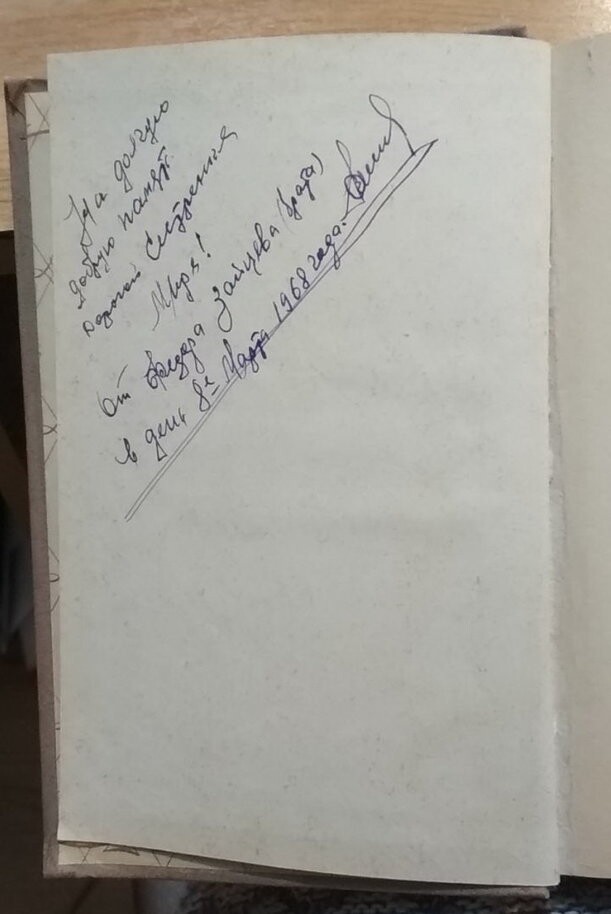 На долгую
добрую память
дорогой сестрёнке
Мире!
от Зайцева (брата)
в день 8е Марта 1968 года.